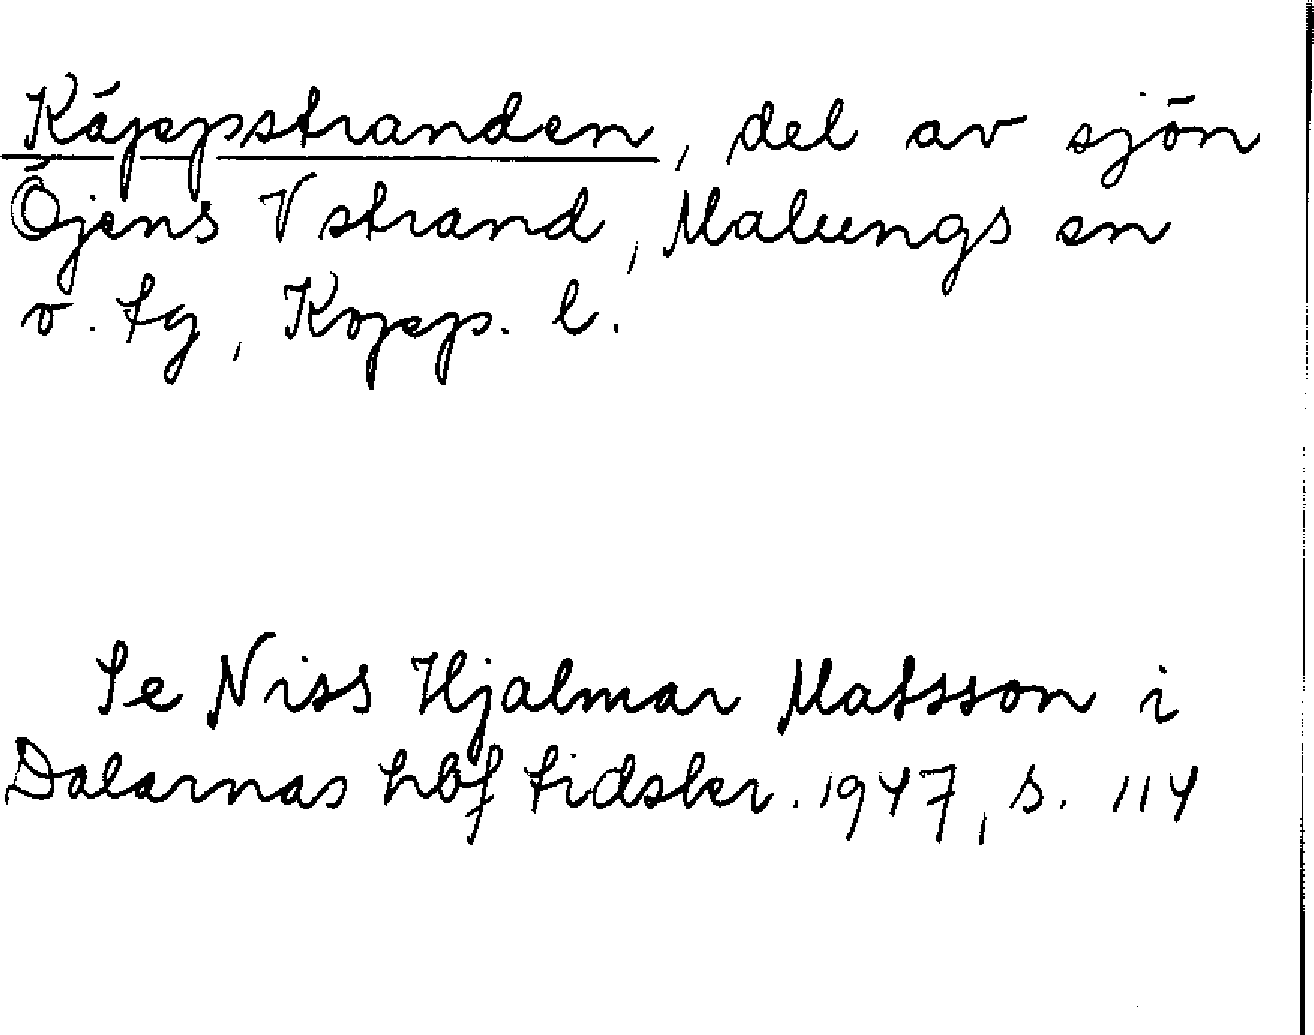 Käppstranden, del av sjön
Öjens V strand, Malungs sn
o. tg, Kopp. l.
Se Niss Hjalmar Matsson i
Dalarnas hbf tidskr. 1947, s. 114